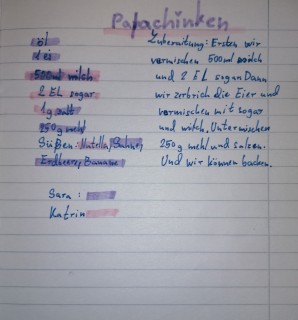 Papachinken
öl
1 ei
500ml milch
2 EL sugar
1g salt
250g mehl
Süßen: Nutella, Sahne,
Erdbeere, Banane
Zubereitung: Ersten wir
vermischen 500ml milch
und 2 EL sogar Dann
wir zerbrich die Eier und
vermischen mit sogar
und milch. Untermischen
250g mehl und salzen.
Und wir können backen.
Sara:
Katrin